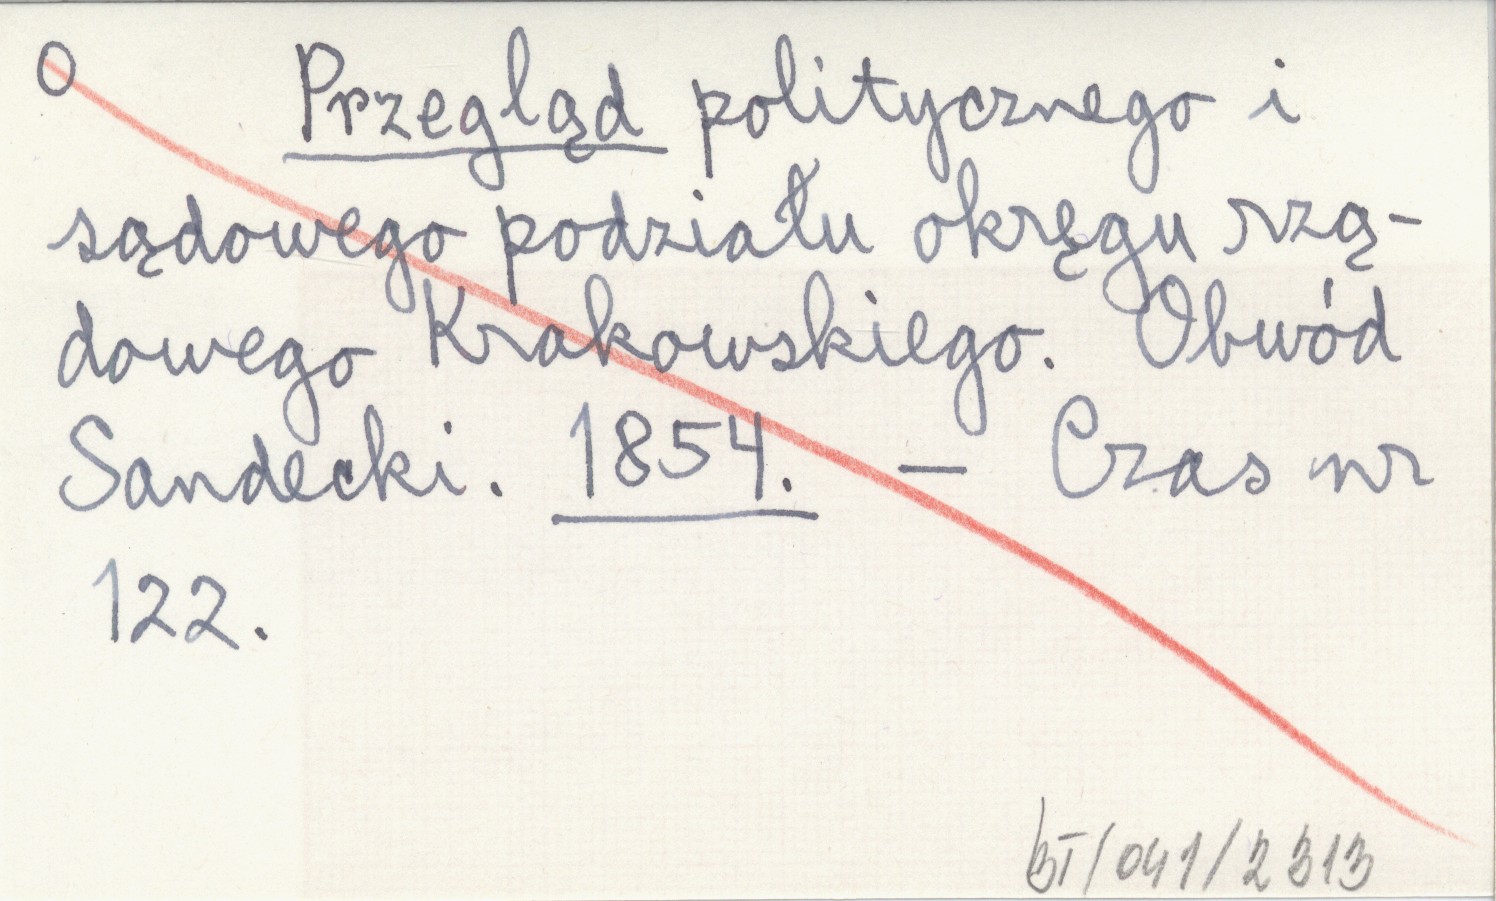 O Przegląd politycznego i
sądowego podziału okręgu rzą-
dowego Krakowskiego. Obwód
Sandecki. 1854. — Czas nr
122.
BT/041/2313